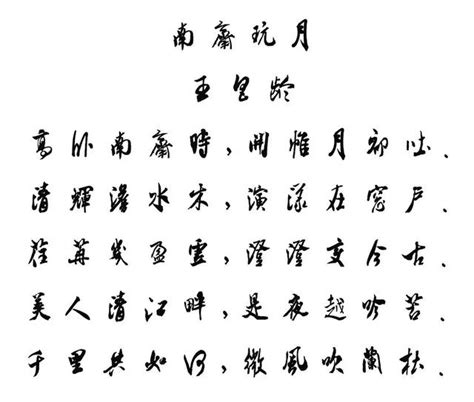 南齋玩月
王昌龄
高臥南齋時,開帷月初吐.
清輝澹水木,演漾在窗戶.
荏苒幾盈虛,澄澄變今古.
美人清江畔,是夜越吟苦.
千里共如何,微風吹蘭杜.